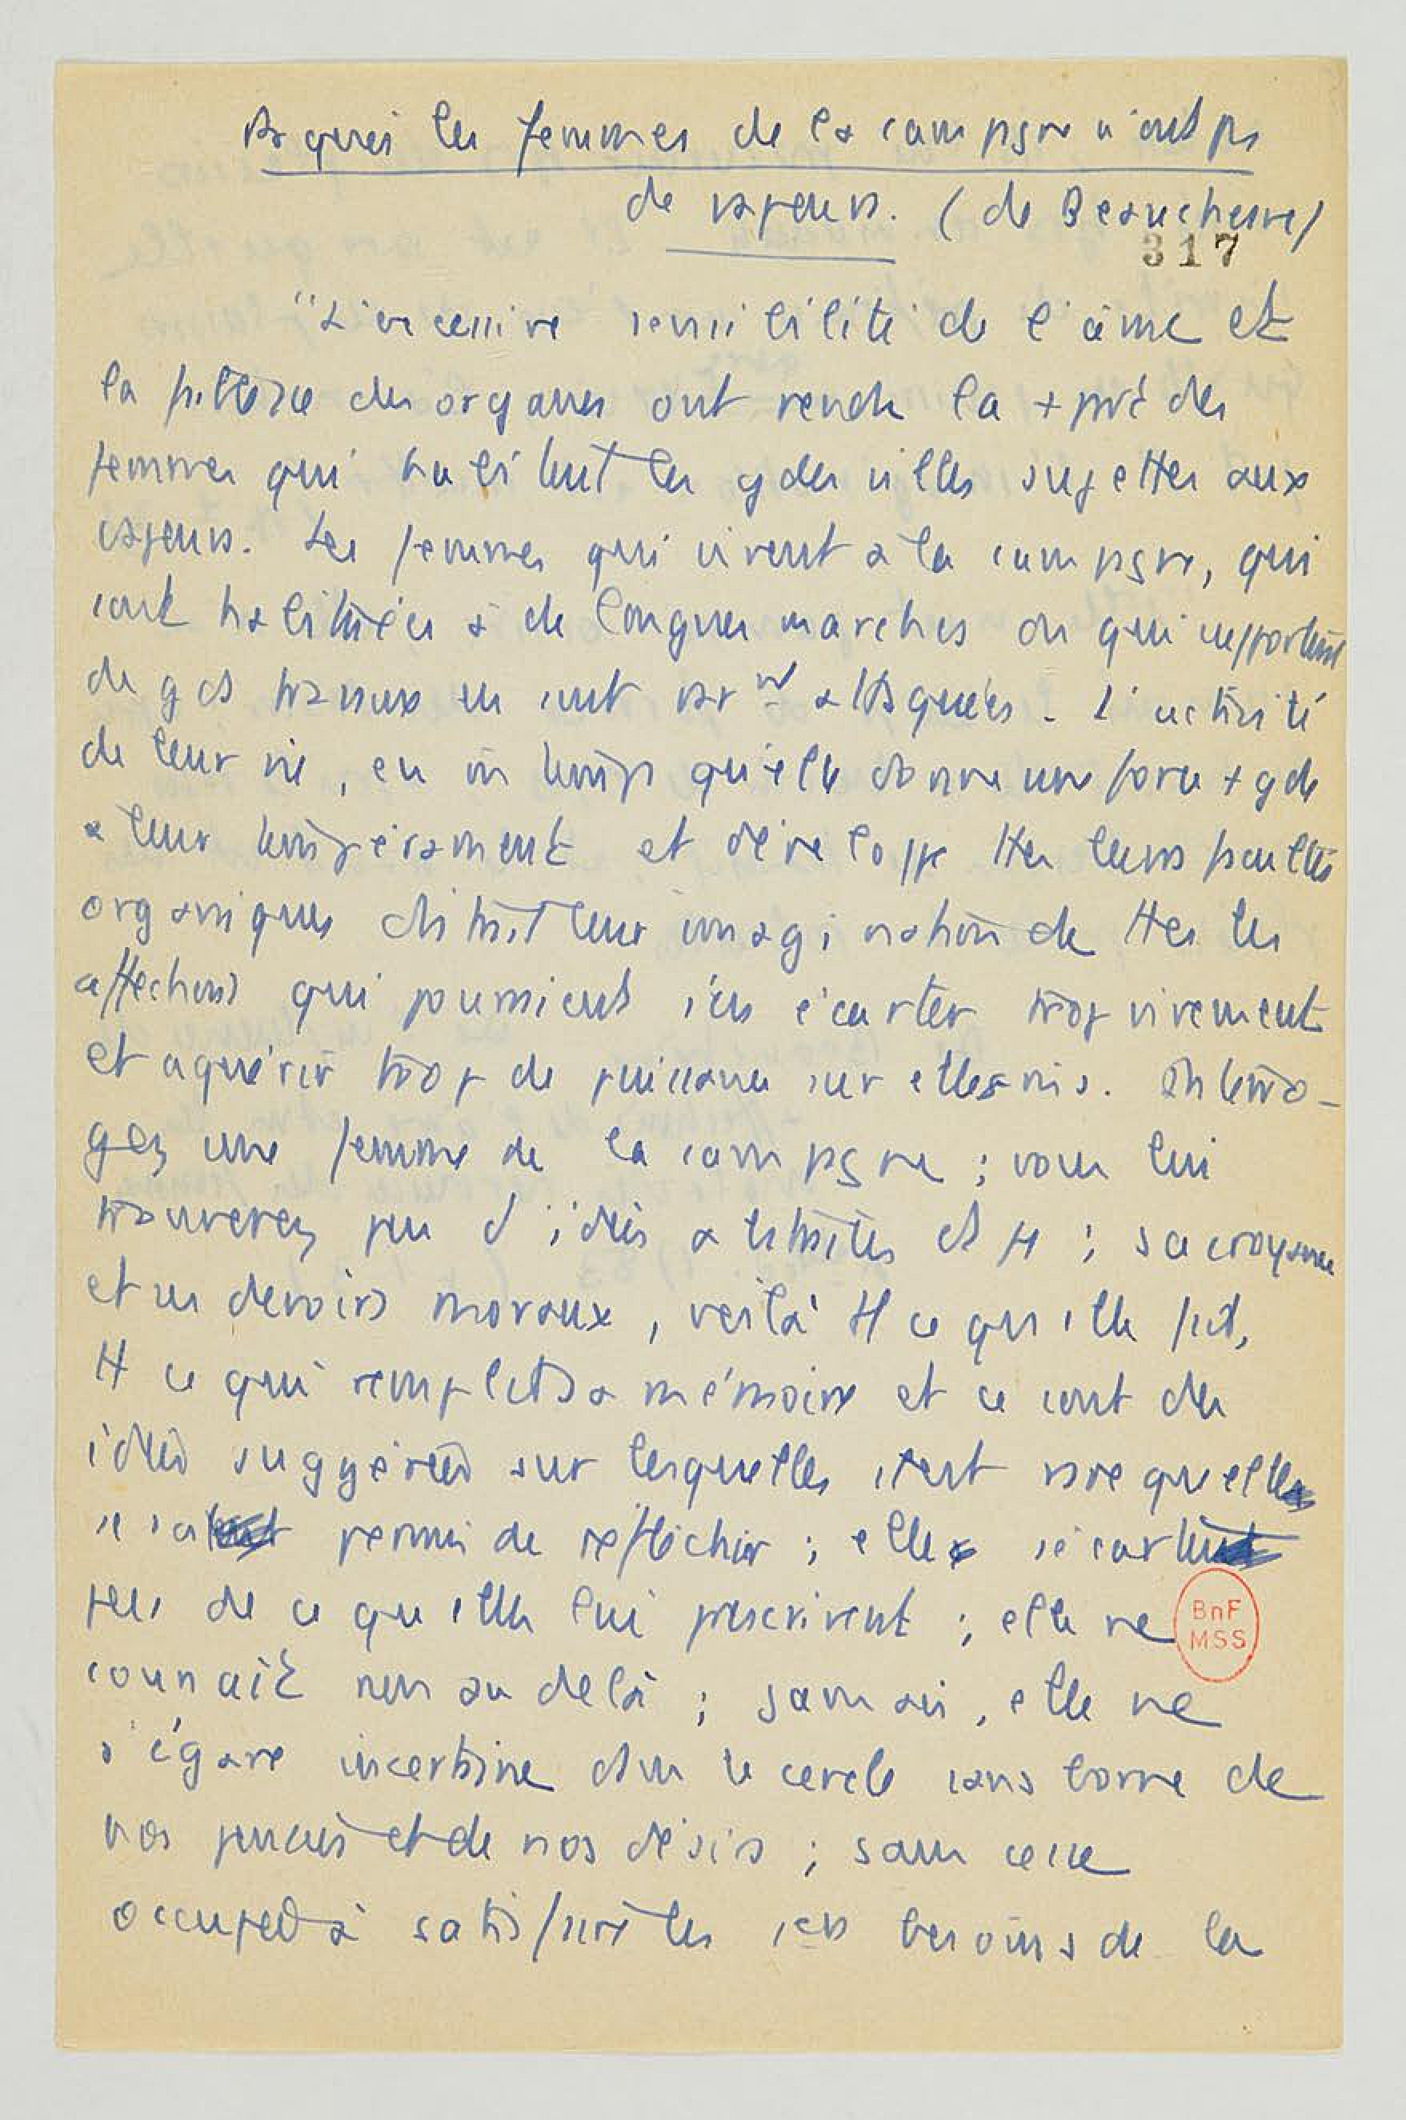 Pquoi les femmes de la campagne n'ont ps
de vapeurs. (de Beauchesne)
317
"L'excessive sensibilité de l'âme et
la faiblesse des organes ont rendu la + part des
femmes qui habitent les gdes villes sujettes aux
vapeurs. Les femmes qui vivent à la campagne, qui
sont habituées à de longues marches ou qui supportent
de gds travaux en sont rart attaquées. L'activité
de leur vie, en m temps qu'elle donne une force + gde
à leur tempérament et développe ttes leurs facultés
organiques distrait leur imagination de ttes les
affections qui pourraient s'en écarter trop vivement
et aquérir trop de puissance sur elles mes. Interro-
gez une femme de la campagne ; vous lui
trouverez peu d'idées abstraites et ; sa croyance
et ses devoirs moraux, voilà tt ce qu'elle sait,
tt ce qui remplit sa mémoire et ce sont des
idées suggérées sur lesquelles il est rare qu'elle
se soit permis de réfléchir ; elle s'écarte
peu de ce qu'elles lui prescrivent ; elle ne
connaît rien au delà ; jamais, elle ne
s'égare incertaine dans le cercle sans borne de
nos pensées et de nos désirs ; sans cesse
occupée à satisfaire les 1ers besoins de la
BnF
MSS